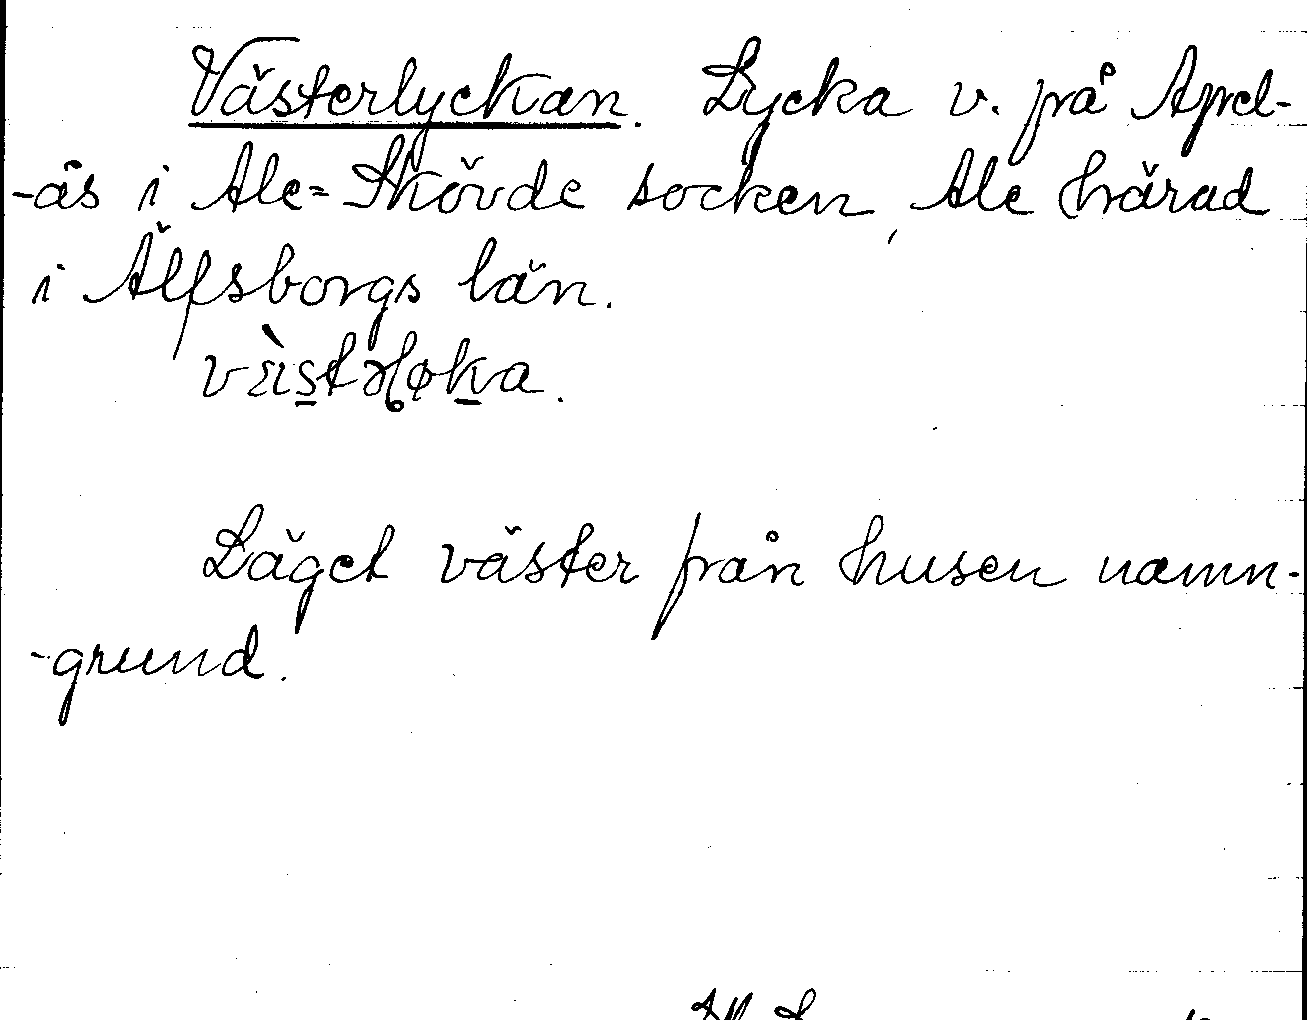 Västerlyckan. Lycka v. på Aprel-
-ås i Ale-Skövde socken, Ale härad
i Älfsborgs län.
Läget väster från husen namn-
-grund.